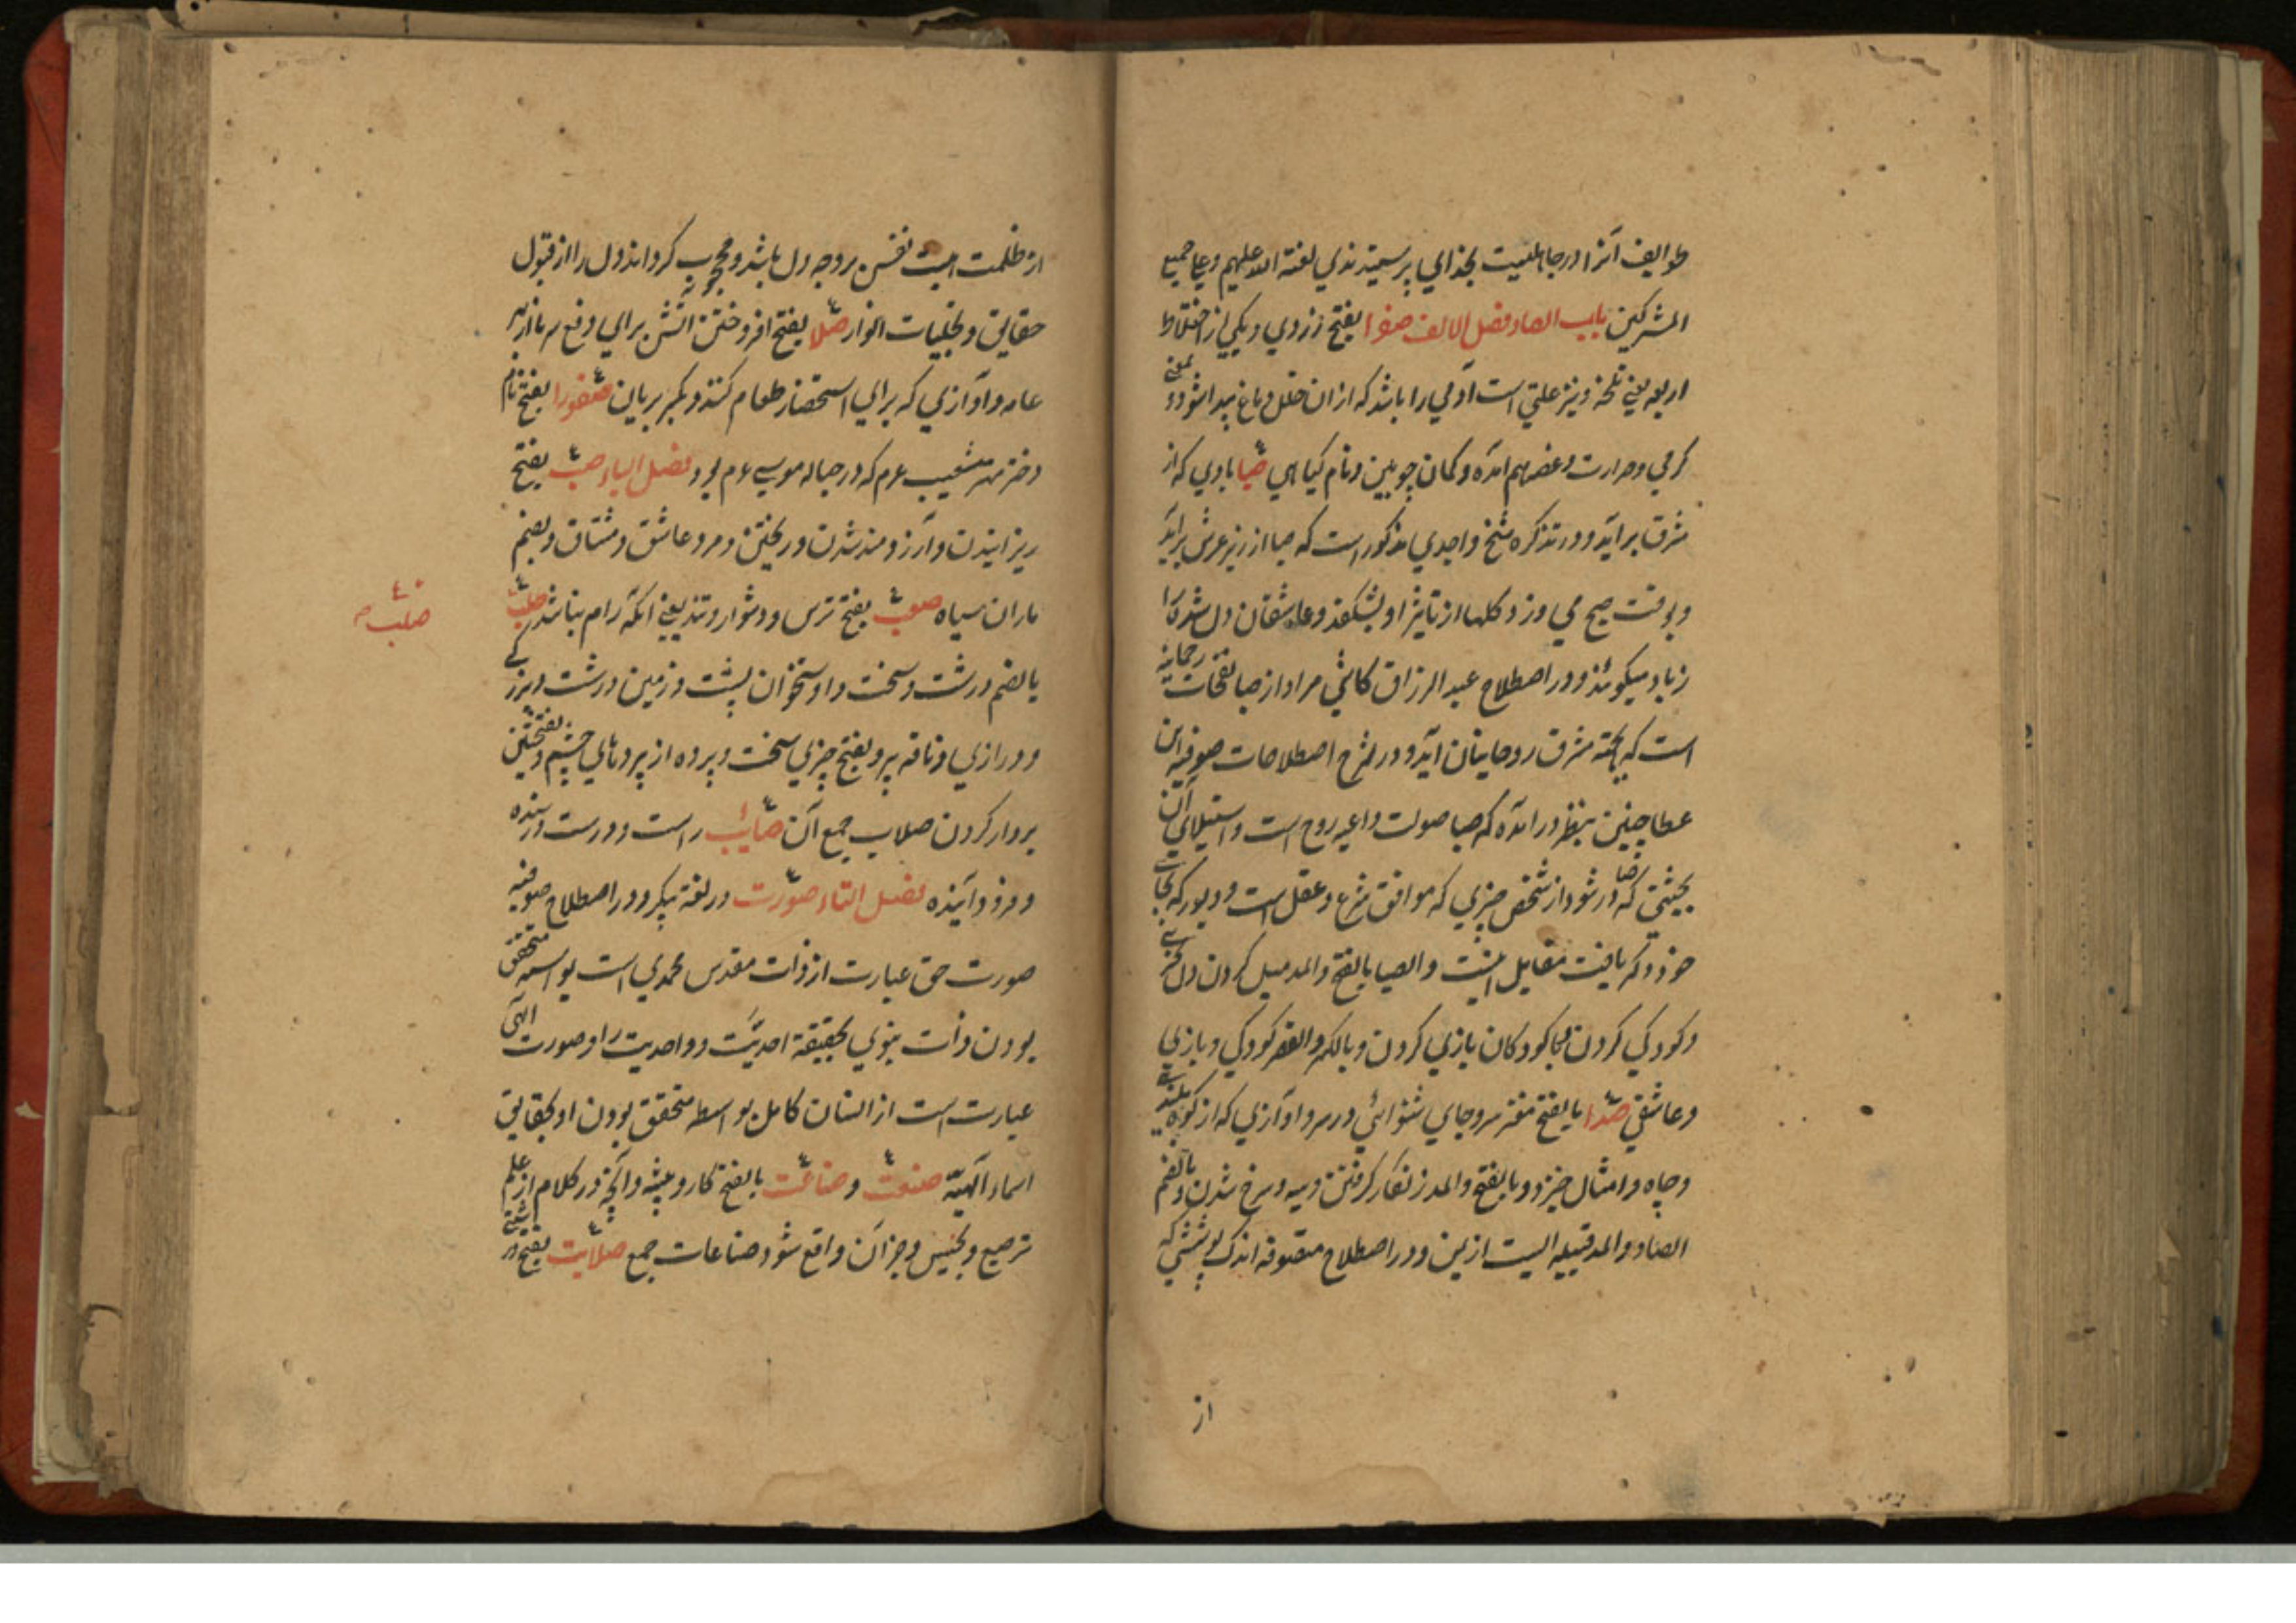 طوایف آنرا در جاهلیت بخدایی پرستیدندی لعنة الله علیهم وعلی جمیع
المشرکین باب الصاد فصل الالف صفرا بفتح زردی و یکی از اخلاط
اربعه یعنی تلخه ونیز علتی است آدمی را باشد که ازان خلل دماغ پیدا شود و بمعنی
گرمی وحرارت وغصه هم آمده وکمان چوبین ونام گیاهی صبا بادی که از
شرق برآید ودر تذکره شیخ واحدی مذکور است که صبا از زیر عرش برآید
وبوقت صبح می وزد وگلها از تاثیر او بشکفد وعاشقان دل شده را
زیاد میگویند ودر اصطلاح عبد الرزاق کاشی مراد از صبا نفحات رحمانیه
است که بجهة شرق روحانیان آید ودر شرح اصطلاحات صوفیه ابن
عطا چنین بنظر درآمده که صبا صولت داعیه روح است واستیلای آن
بحیثیتی که صادر شود از شخص چیزی که موافق شرع وعقل است ودبور که بجای
خود ذکر یافت مقابل اینست والصبا بالفتح والمد میل کردن دل بچیزی
وکودکی کردن وبا کودکان بازی کردن وبالکسر والقصر کودکی وبازی
وعاشقی صدا بالفتح مغز سر وجای شنوائی در سر وآوازی که از کوه
وچاه وامثال خیزد وبالفتح والمد زنگار گرفتن وسیه وسرخ شدن وبالضم
الصاد والمد قبیله ایست از یمن ودر اصطلاح متصوفه اندک پوششی که
از
از ظلمت هیئت نفس بر وجه دل باشد ومحجوب گرداند دل را از قبول
حقایق وتجلیات انوار صلا بفتح افروختن آتش برای دفع سرما از بهر
عامه وآوازی که برای استحضار طعام کنند وبکسر بریان صفورا بفتح نام
دختر مهتر شعیب عم که در حباله موسی عم بود فصل الباء صب بفتح
ریزانیدن وآرزومند شدن وریختن ومرد عاشق ومشتاق وبضم
باران سیاه صعب بفتح ترس ودشوار وتند یعنی آنکه رام نباشد صلب
صلب
بالضم درشت وسخت واستخوان پشت وزمین درشت وبزرگی
ودرازی وناقه پر وبفتح چیزی سخت وپرده از پردهای چشم وبفتحتین
بردار کردن صلاب جمع آن صایب راست ودرست ورسنده
وفرود آینده فصل التاء صورت در لغة پیکر ودر اصطلاح صوفیه
صورت حق عبارت از ذات مقدس محمدی است بواسطه متحقق
بودن ذات نبوی بحقیقة احدیت وواحدیت را وصورت الهی
عبارت است از انسان کامل بواسطه متحقق بودن او بحقایق
اسماء آلهیه صنعت وصناعت بالفتح کار وپیشه وآنچه در کلام از علم
ترصیع وتجنیس وجز آن واقع شود صناعات جمع صلابت بفتح